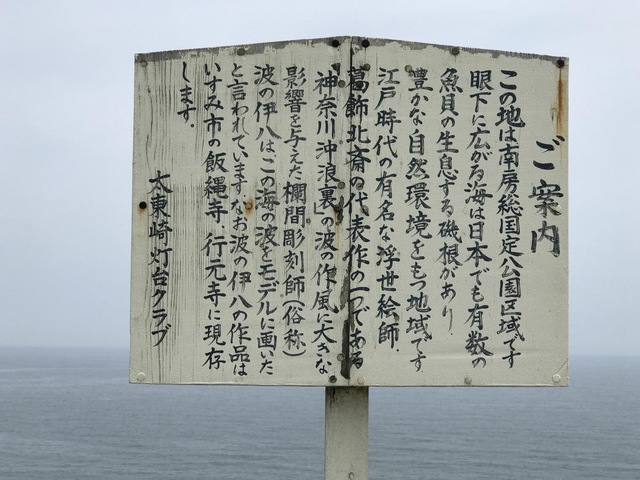 ご案内
この地は南房総国定公園区域です
眼下に広がる海は日本でも有数の
魚貝の生息する磯根があり、
豊かな自然環境をもつ地域です
江戸時代の有名な浮世絵師、
葛飾北斎の代表作の一つである
「神奈川沖浪裏」の波の作風に大きな
影響を与えた欄間彫刻師(俗称)
波の伊八はこの海の波をモデルに画いた
と言われています。なお波の伊八の作品は
いすみ市の飯縄寺、行元寺に現存
します。
太東崎灯台クラブ